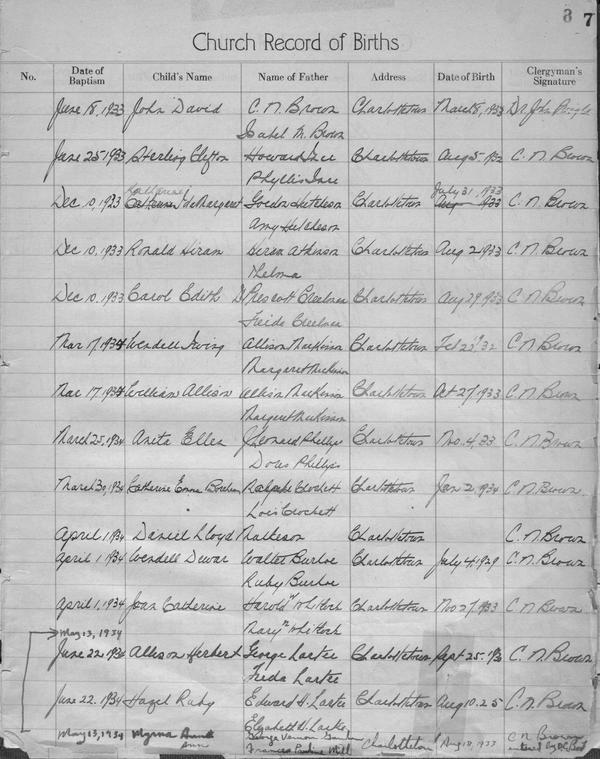 8 7
Church Record of Births
No. Date of Baptism Child's Name Name of Father Address Date of Birth Clergyman's Signature
June 18, 1933 John David C. N. Brown Charlottetown March 8, 1933 Dr. John
Isabel M. Brown
June 25 1933 Sterling Clifton Howard Ince Charlottetown Aug 5. 1932 C. N. Brown
Phyllis Ince
Katherine July 31, 1933
Dec 10, 1933 Margaret Gordon Hutcheson Charlottetown Aug 1933 C. N. Brown
Amy Hutcheson
Dec 10, 1933 Ronald Hiram Hiram Atkinson Charlottetown Aug 2 1933 C. N. Brown
Thelma
Dec 10, 1933 Carol Edith D Prescott Creelman Charlottetown Aug 29 1933 C. N. Brown
Freida Creelman
Mar 17, 1934 Wendell Irving Allison MacKinnon Charlottetown Feb 22nd 32 C. N. Brown
Margaret MacKinnon
Mar 17. 1934 William Allison Allison MacKinnon Charlottetown Oct 27, 1933 C. N. Brown
Margaret MacKinnon
March 25, 1934 Anita Ellen Leonard Phillips Charlottetown No. 4, 33 C. N. Brown
Doris Phillips
March 30, 1934 Catherine Emma Ralph Crockett Charlottetown Jan 2, 1934 C. N. Brown
Lois Crockett
April 1 1934 Daniel Lloyd Matheson Charlottetown C. N. Brown
April 1 1934 Wendell Dewar Walter Burhoe Charlottetown July 4, 1929 C. N. Brown
Ruby Burhoe
April 1, 1934 Joan Catherine Harold Whitlock Charlottetown Nov 27, 1933 C. N. Brown
Mary Whitlock
May 13, 1934
June 22, 1934 Allison Herbert George Larter Charlottetown Sept 25. C. N. Brown
Freda Larter
June 22. 1934 Hazel Ruby Edward H. Larter Charlottetown Aug 10. 25 C. N. Brown
Elizabeth H. Larter
May 13, 1934 Myrna George Vernon Charlottetown Aug 18, 1933 C N Brown
Ann Frances Pauline Mill entered by